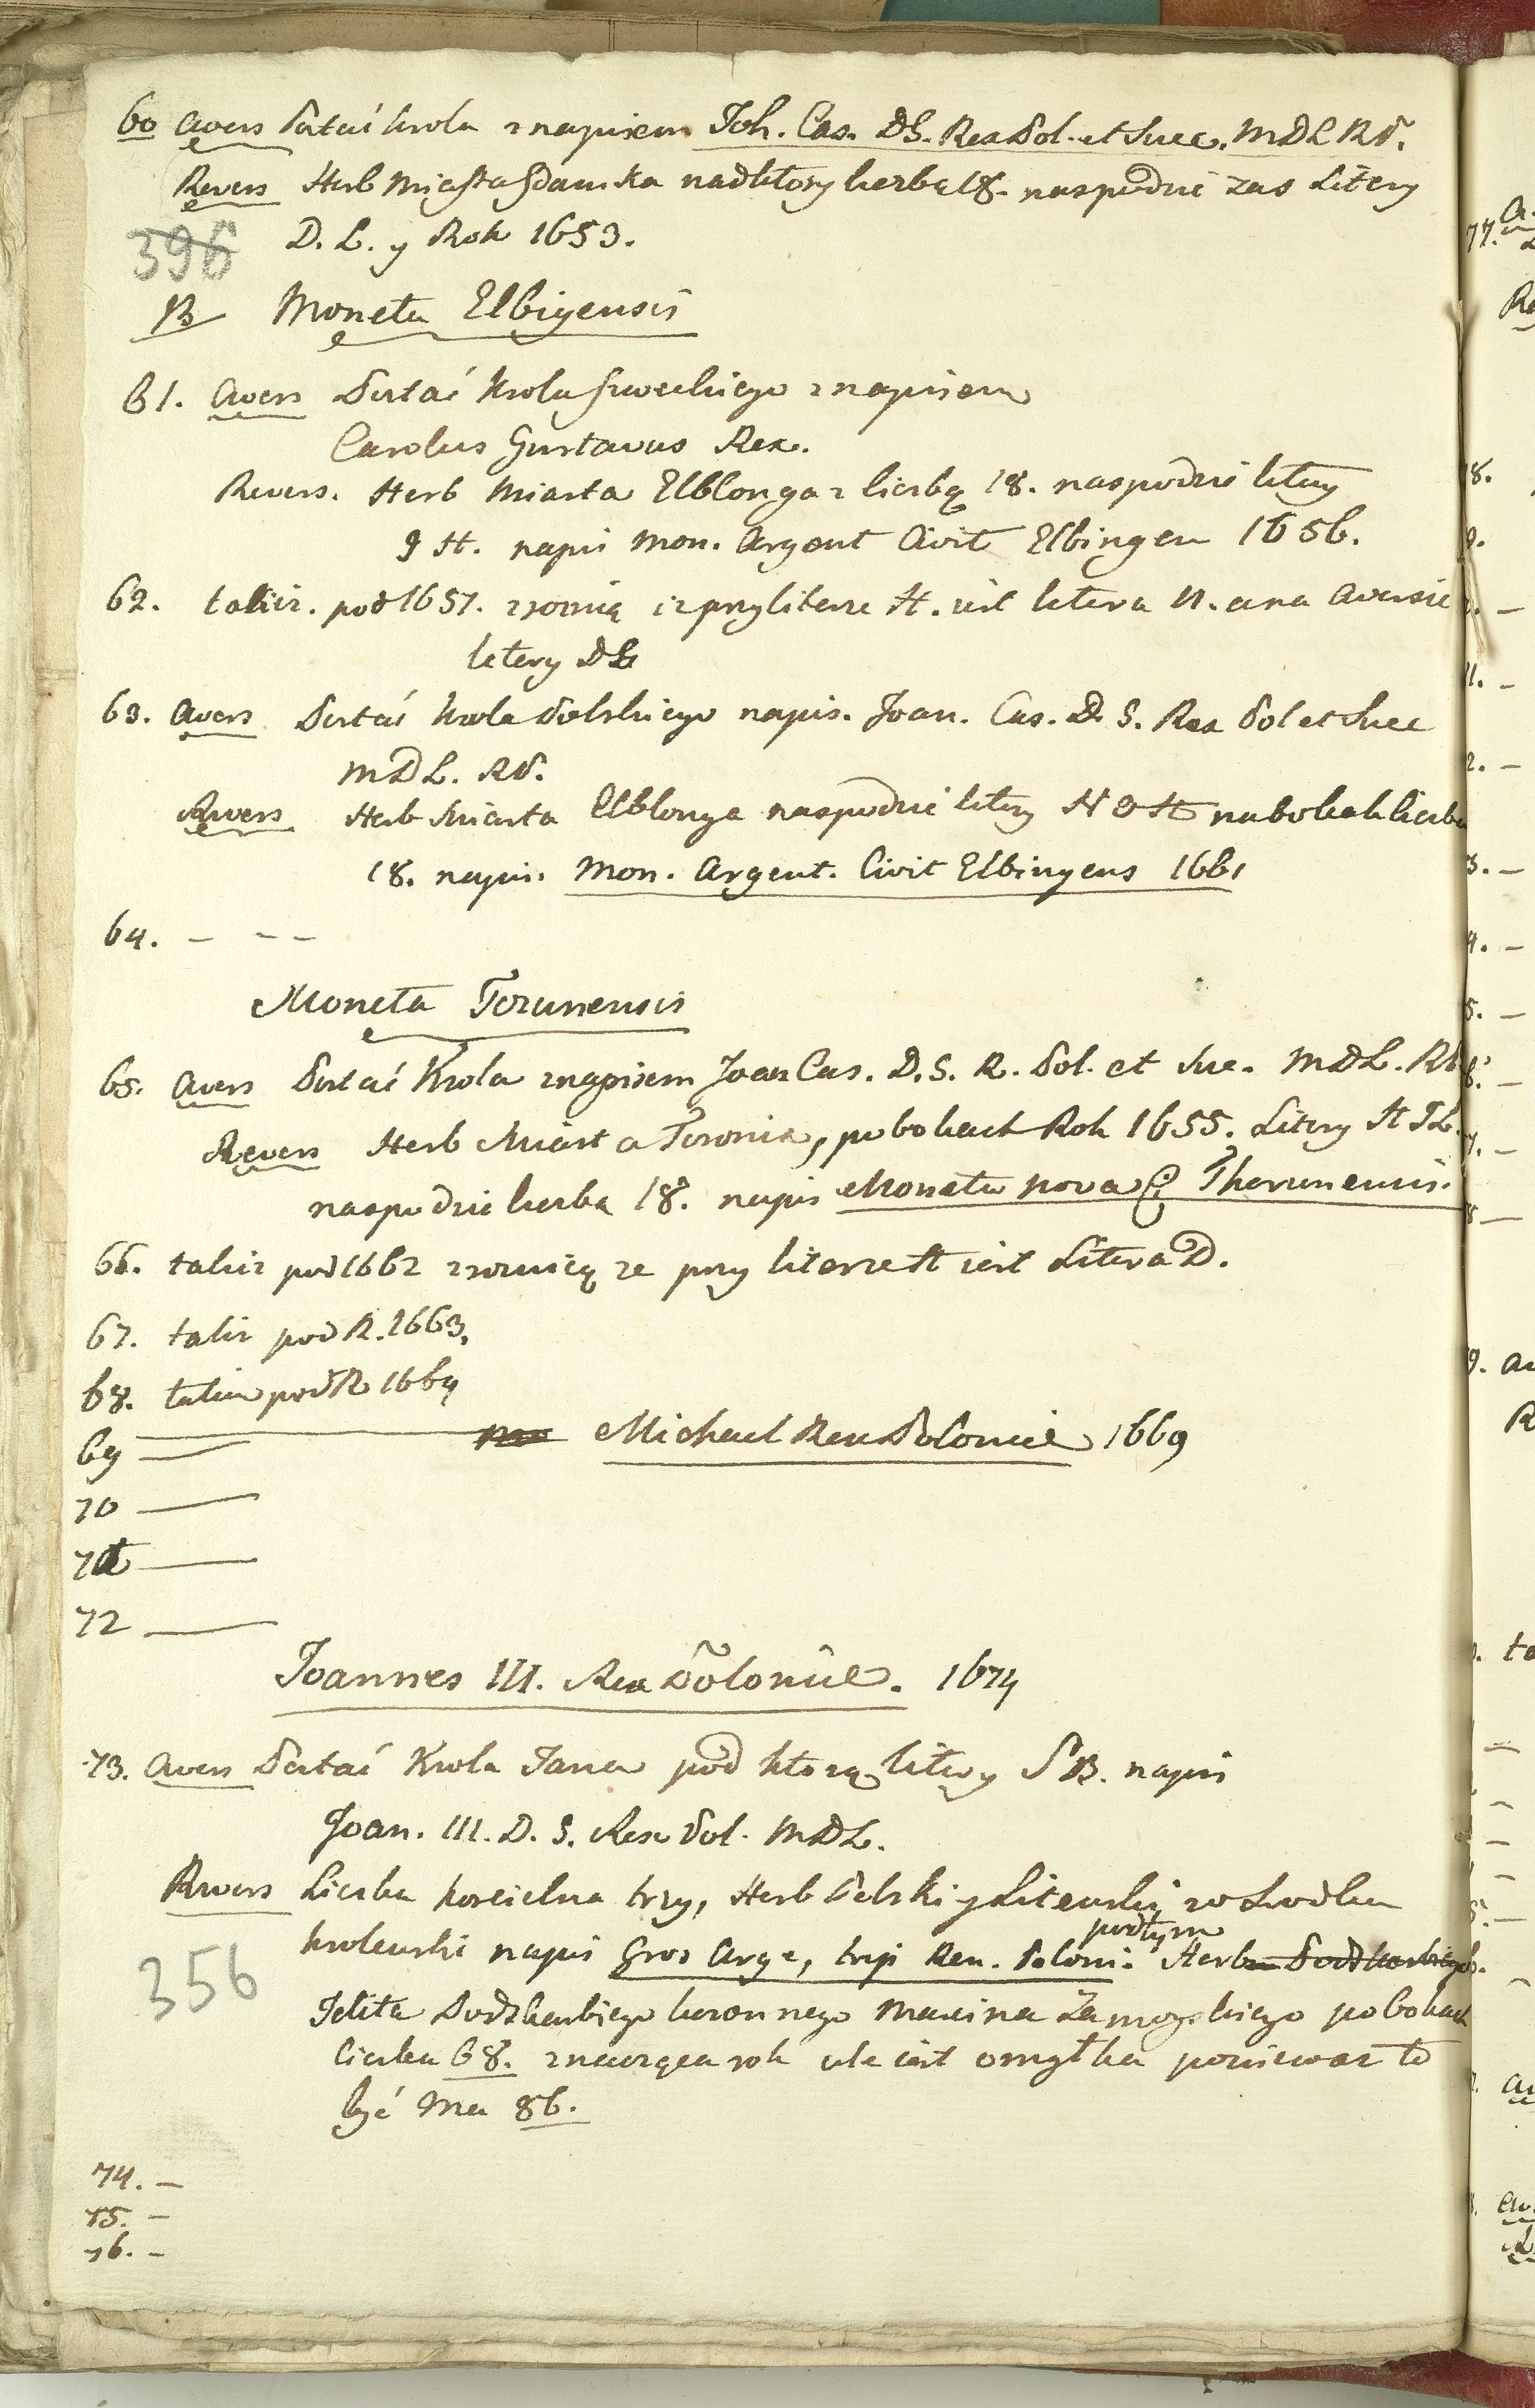 60 Avers Postać krola z napisem Joh. Cas. DG. Rex Pol. et Suec. MDL RP.
Revers Herb Miasta Gdanska nad ktory liczba 18. naspodzie zas Litery
396 D. L. y Rok 1653.
B Moneta Elbigensis
61. Avers Postać Krola Szweckiego z napisem
Carolus Gustavus Rex.
Revers. Herb Miasta Elblonga z liczbą 18. naspodzie litery
I H. napis Mon. Argent Civit Elbingen 1656.
62. takiż. pod 1657. z roznią iż przy literze H. iest litera N. a na Aversie
litery DG
63. Avers Postać Krola Polskiego napis. Joan. Cas. D. G. Rex Pol et Suec
MDL. RP.
Revers Herb Miasta Elblonga naspodzie litery N & H na bokah liczba
18. napis. Mon. Argent. Civit Elbingens 1661
64. – – –
Moneta Torunensis
65. Avers Postać Krola z napisem Joan Cas. D. G. R. Pol. et Sue. MDL. RP
Revers Herb Miasta Toronia, po bokach Rok 1655. Litery H I L.
naspodzie liczba 18. napis Moneta nova C: Thorunensis.
66. takiż pod 1662 z roznicą ze przy literze H iest Litera D.
67. takiż pod R. 1663.
68. takiż pod R 1664
69 — Michael Rex Polonie 1669
70 —
71 —
72 —
Joannes III. Rex Polonie. 1674
73. Avers Postać Krola Jana pod ktorą litery S B. napis
Joan. III. D. G. Rex Pol. MDL.
Revers Liczba koscielna trzy, Herb Polski y Litewski w srodku
pod tym
krolewski napis Gros Arge, trip Ren. Poloni. Herb Podskarbiego.
356 Jelita Podskarbiego koronnego Marcina Zamoyskiego po bokach
liczba 68. znacząca rok ale iest omyłka poniewaz to
być ma 86.
74. –
75. –
76. –